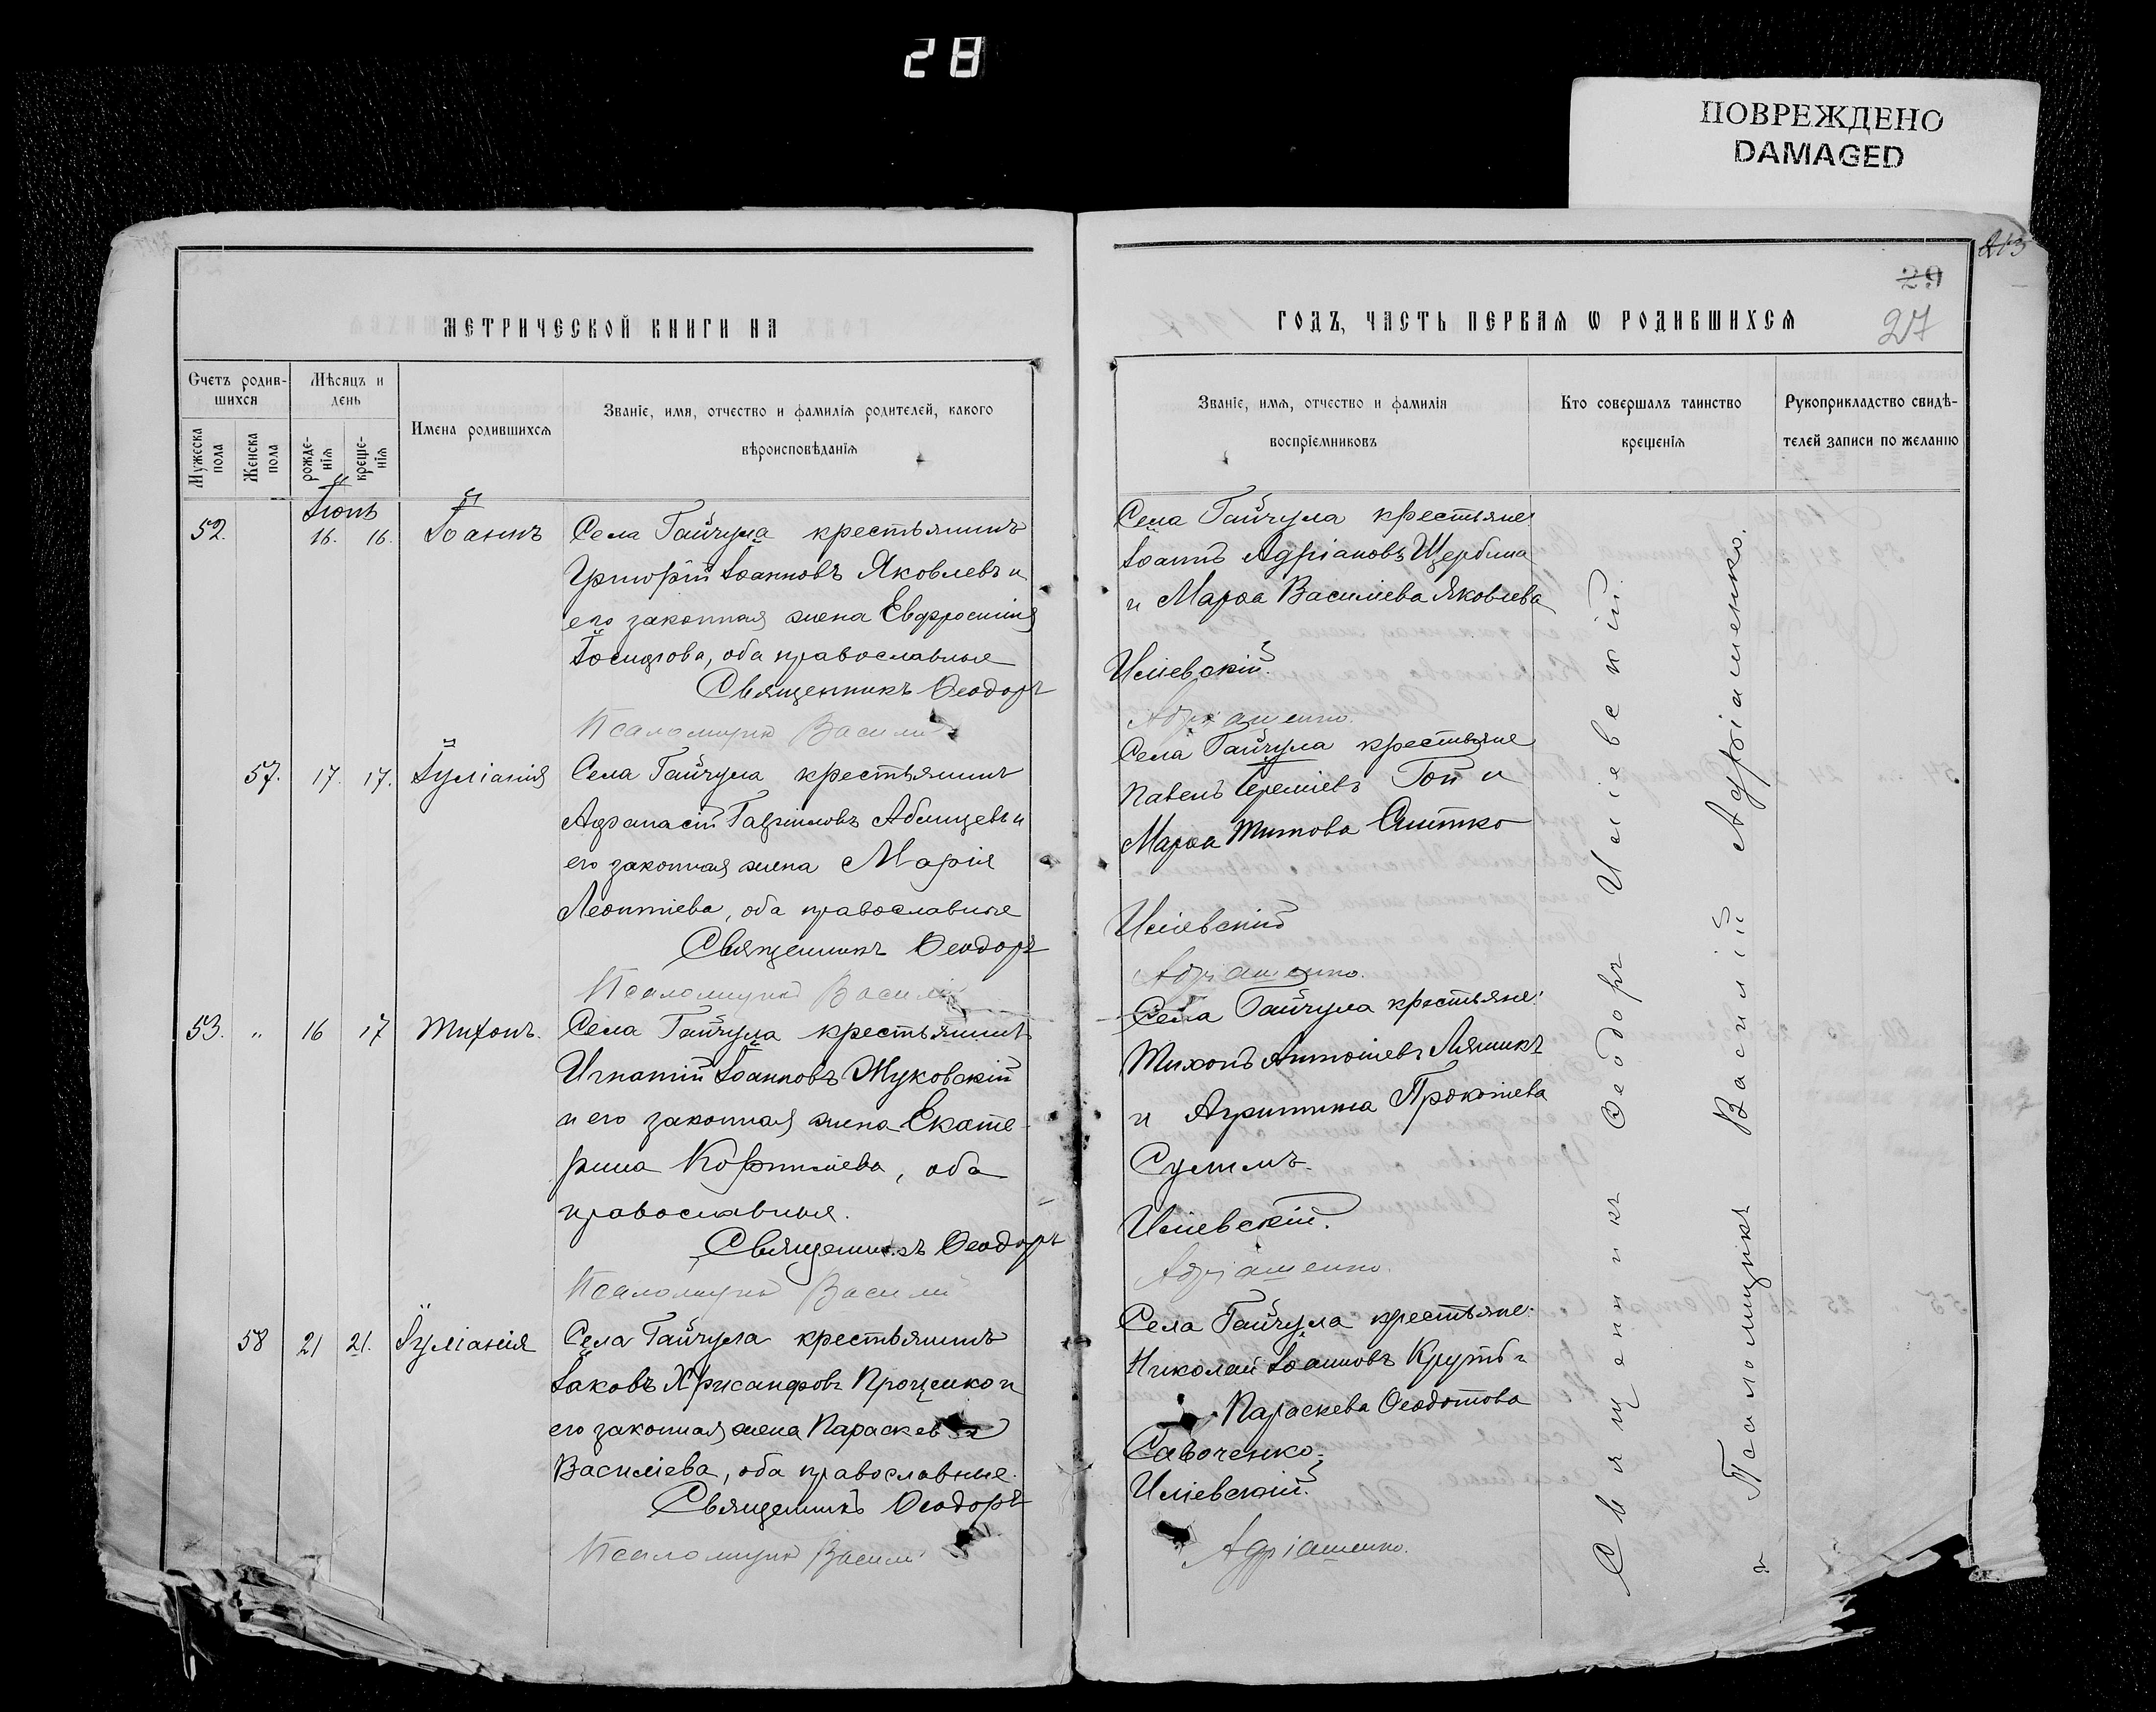 28
ПОВРЕЖДЕНО
DAMAGED
МЕТРИЧЕСКОЙ КНИГИ НА
Счетъ родив-
шихся
Мѣсяцъ и
день
Имена родившихся
Званіе, имя, отчество и фамилія родителей, какого
вѣроисповѣданія
Мужеска
пола
Женска
пола
рожде-
нія
креще-
нія
Іюнь
52. 16. 16. Іоаннъ Села Гайчула крестьянинъ
Григорій Іоанновъ Яковлевъ и
его законная жена Евфросинія
Іосифова, оба православные
Священникъ Ѳеодоръ
Псаломщикъ Василій
57. 17. 17. Іуліанія Села Гайчула крестьянинъ
Афанасій Гавріиловъ и
его законная жена Марія
Леонтіева, оба православные
Священникъ Ѳеодоръ
Псаломщикъ Василій
53. „ 16 17 Тихонъ. Села Гайчула крестьянинъ
Игнатій Іоанновъ Жуковскій
и его законная жена Екате-
рина Корниліева, оба
православныя.
Священникъ Ѳеодоръ
Псаломщикъ Василій
58 21 21. Іуліанія Села Гайчула крестьянинъ
Іаковъ Хрисанфовъ Проценко и
его законная жена Параскева
Василіева, оба православные.
Священникъ Ѳеодоръ
Псаломщикъ Василій
213
29
27
ГОДЪ, ЧАСТЬ ПЕРВАЯ Ѡ РОДИВШИХСЯ
Званіе, имя, отчество и фамилія
воспріемниковъ
Кто совершалъ таинство
крещенія
Рукоприкладство свидѣ-
телей записи по желанію
Села Гайчула крестьяне:
Іоаннъ Адріановъ Щербина
и Марѳа Василіева Яковлева
Иліевскій.
Адріаненко.
Села Гайчула крестьяне
Павелъ Гой и
Марѳа Титова
Иліевскій
Адріаненко.
Села Гайчула крестьяне:
Тихонъ Антоніевъ Ляшикъ
и Агриппина Прокопіева
Иліевскій.
Адріаненко.
Села Гайчула крестьяне:
Николай Іоанновъ и
Параскева Ѳеодотова
Савоченко.
Иліевскій.
Адріаненко.
Священникъ Ѳеодоръ Иліевскій.
и Псаломщикъ Василій Адріаненко.